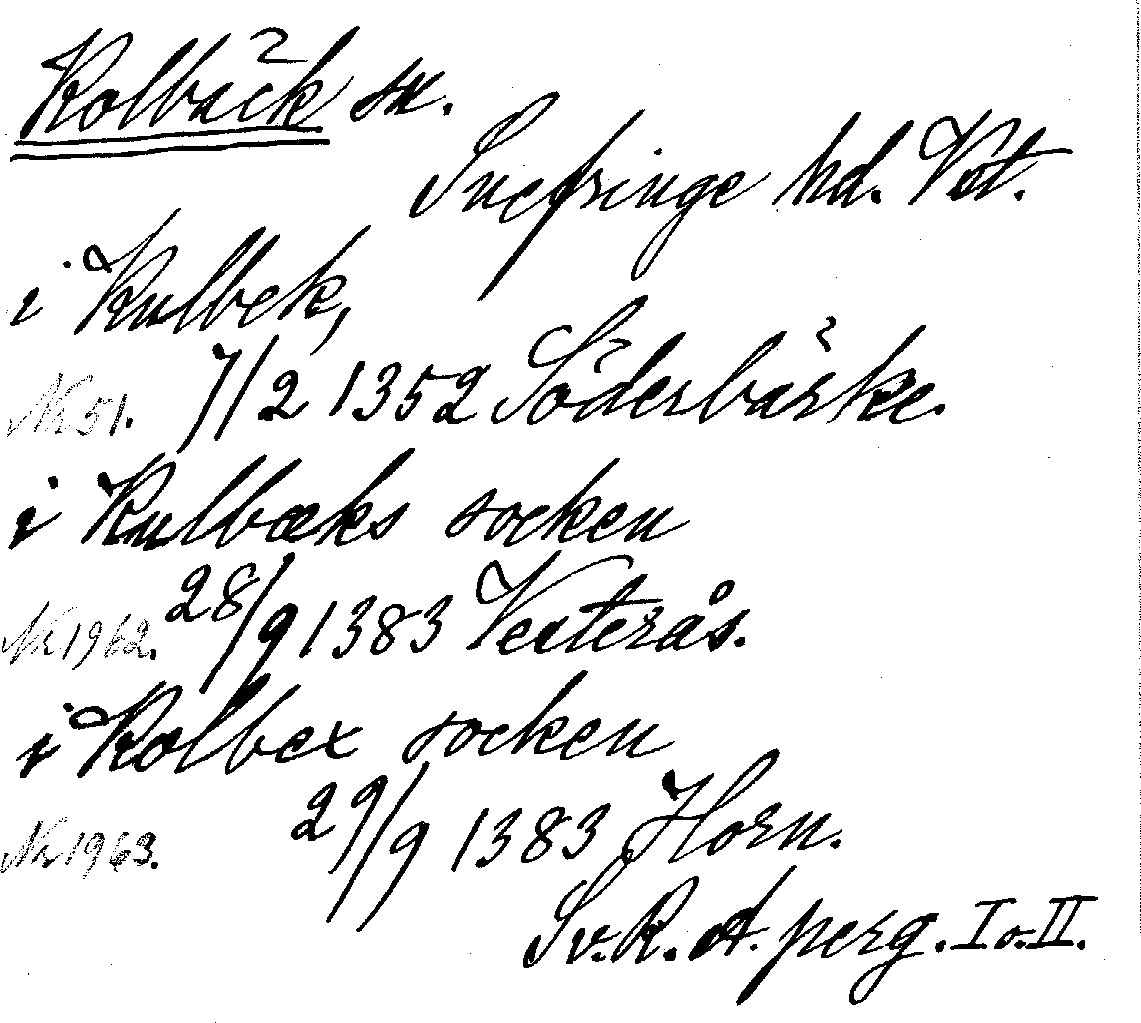 Kolbäck sn.
Snefringe hd. Vst.
i Kulbek,
Nr 51. 7/2 1352 Söderbärke.
i Kulbæks socken
Nr 1962. 28/9 1383 Vesterås.
i Kolbex socken
Nr 1963. 29/9 1383 Horn.
Sv. R. A. perg. I o. II.